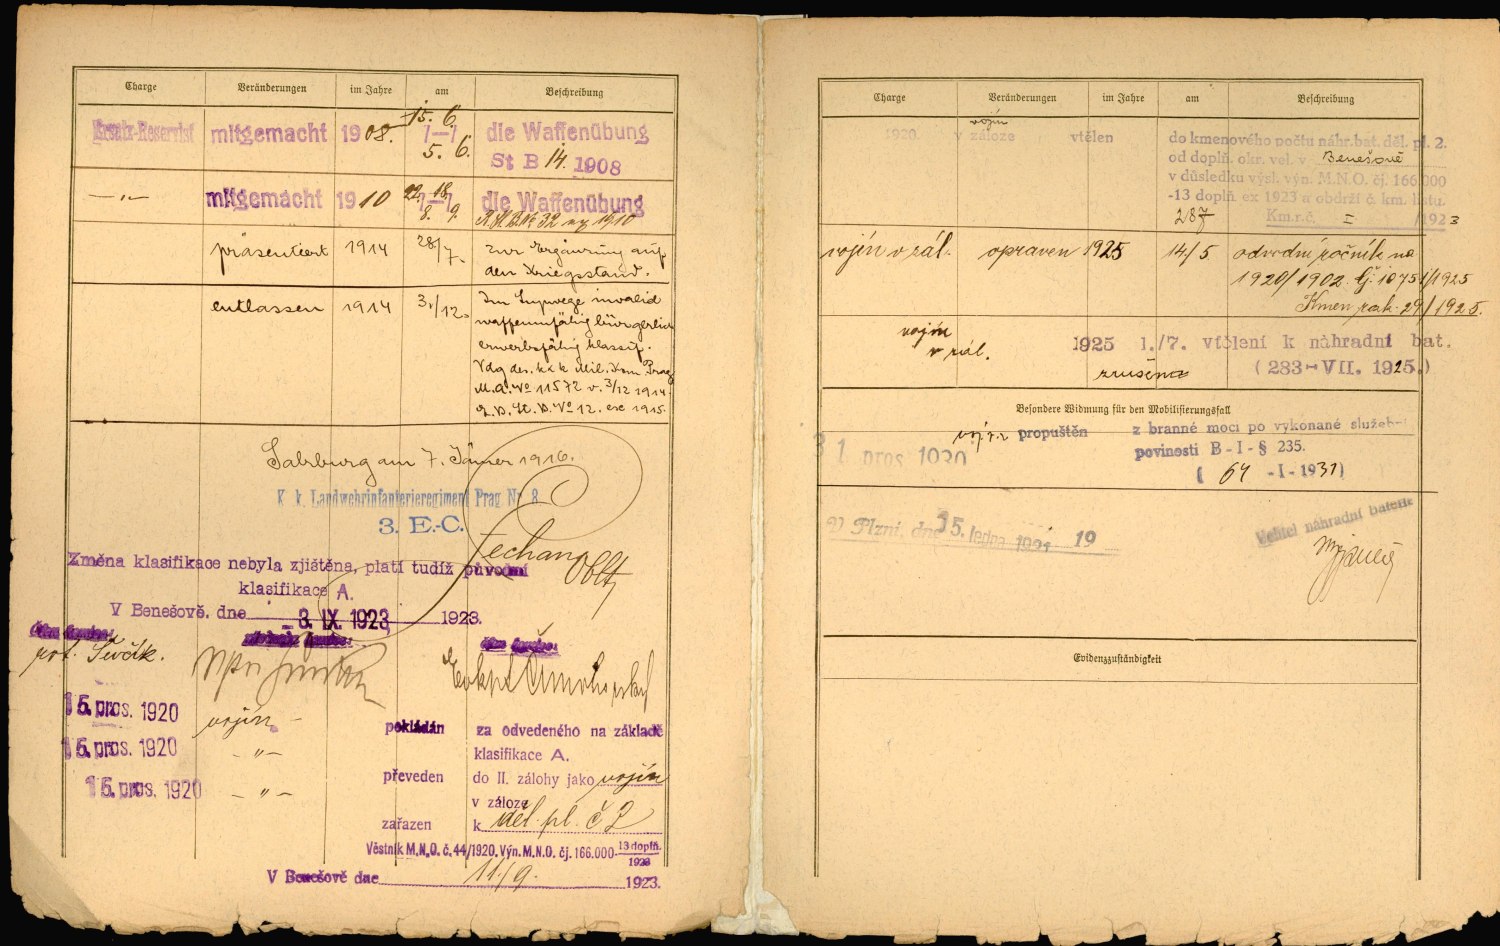 Charge Veränderungen im Jahre am Beschreibung
Ersatz-Reservist mitgemacht 1908. 15. 6. die Waffenübung
5. 6. St B 14. 1908
—"— mitgemacht 1910 22. 18. die Waffenübung
8. 9. N. 32 1910
präsentiert 1914 28./7. zur Ergänzung auf
den Kriegsstand.
entlassen 1914 3./12. Im invalid
waffenunfähig bürgerlich
erwerbsfähig klassif.
Vdg des. k.k. Mil. Kom Prag
M.A. No 11572 v. 3/12 1914.
No 12. 1915.
Salzburg am 7. Jänner 1916.
K. k. Landwehrinfanterieregiment Prag Nr. 8
3. E.-C.
Oblt
Změna klasifikace nebyla zjištěna, platí tudíž původní
klasifikace A.
V Benešově, dne 3. IX. 1923 1923.
rot. Ševčík.
15. pros. 1920 vojín – pokládán za odvedeného na základě
klasifikace A.
15. pros. 1920 –"– převeden do II. zálohy jako vojín
v záloze
15. pros. 1920 –"– zařazen k děl. pl. č 2
Věstník M.N.O. č. 44/1920. Výn. M.N.O. čj. 166.000-13 doplň. 1923
V Benešově dne 11./9. 1923.
Charge Veränderungen im Jahre am Beschreibung
vojín
1920. v záloze vtělen do kmenového počtu náhr. bat. děl. pl. 2.
od doplň. okr. vel. v Benešově
v důsledku výsl. výn. M.N.O. čj. 166.000
-13 doplň. ex 1923 a obdrží č. km. listu.
287 Km.r.č. I /1923
vojín v zál. opraven 1925 14/5 odvodní ročník na
1920/1902. čj. 10751/1925
Kmen. rak. 29/1925.
vojín
v zál. 1925 1./7. vtělení k náhradní bat.
zrušena (283-VII. 1925.)
Besondere Widmung für den Mobilisierungsfall
31 pros 1930 propuštěn z branné moci po vykonané služební
povinosti B-I-§ 235.
( 64 -I-1931)
V Plzni, dne 15. ledna 1931 19
Velitel náhradní baterie
Evidenzzuständigkeit